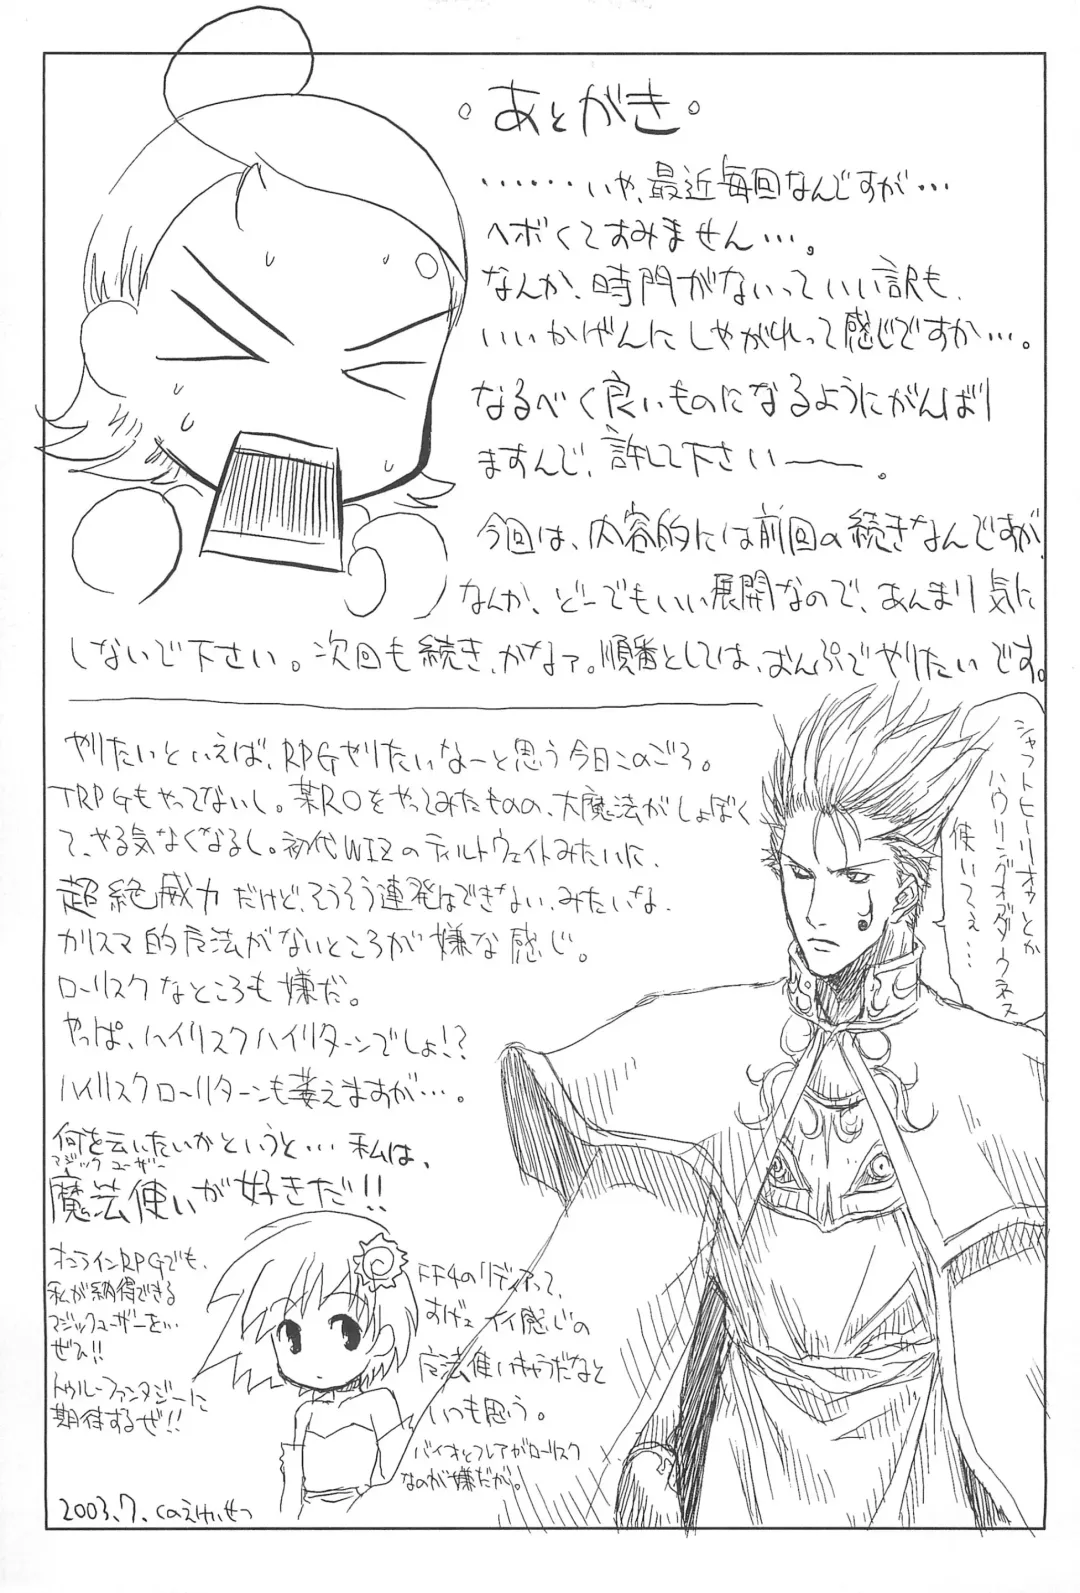 。あとがき。
……いや、最近毎回なんですが…
ヘボくてすみません…。
なんか、時間がないっていい訳も、
いいかげんにしやがれって感じですか…。
なるべく良いものになるようにがんばり
ますんで、許して下さい——。
今回は、内容的には前回の続きなんですが、
なんか、どーでもいい展開なので、あんまり気に
しないで下さい。次回も続き、かなァ。順番としては、おんぷでやりたいです。
やりたいといえば、RPGやりたいなーと思う今日このごろ。
TRPGもやってないし。某ROをやってみたものの、大魔法がしょぼく
て、やる気なくなるし。初代WIZのティルトウェイトみたいに、
超絶威力だけど、そうそう連発はできない、みたいな、
カリスマ的魔法がないところが嫌な感じ。
ローリスクなところも嫌だ。
やっぱ、ハイリスクハイリターンでしょ!?
ハイリスクローリターンも萎えますが…。
何を云いたいかというと…私は、
マジックユーザー
魔法使いが好きだ!!
オンラインRPGでも、
私が納得できる
マジックユーザーを…
ぜひ!!
トゥルーファンタジーに
期待するぜ!!
FF4のリディアって、
すげェイイ感じの
魔法使いキャラだなと
いつも思う。
バイオとフレアがローリスク
なのが嫌だが。
シャフトヒーリィオゥとか
ハウリングオブダークネス
使いてぇ…
2003.7. くのえけいせつ